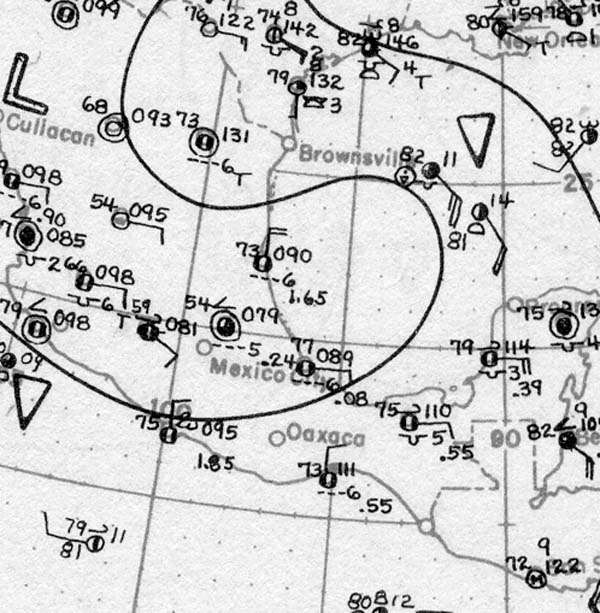 099
76 122
74 8 142
2
82 8 146
4 T
80 159
New Orle
79 8 132
3
Culiacan
68 093
73 131
6 T
Brownsvil
82 11
82
82
25
098
6
.90
54 095
14
81
085
2
66 098
6
T
73 090
6
1.65
79 098
59 081
54 079
5
.24
77 089
6
.08
Mexico City
79 114
3
.39
75 13
4
09
100
75 095
1.85
Oaxaca
75 110
5
.55
90
82 9 10
Be
73 111
6
.55
79 11
81
9
72 122
80 8 12